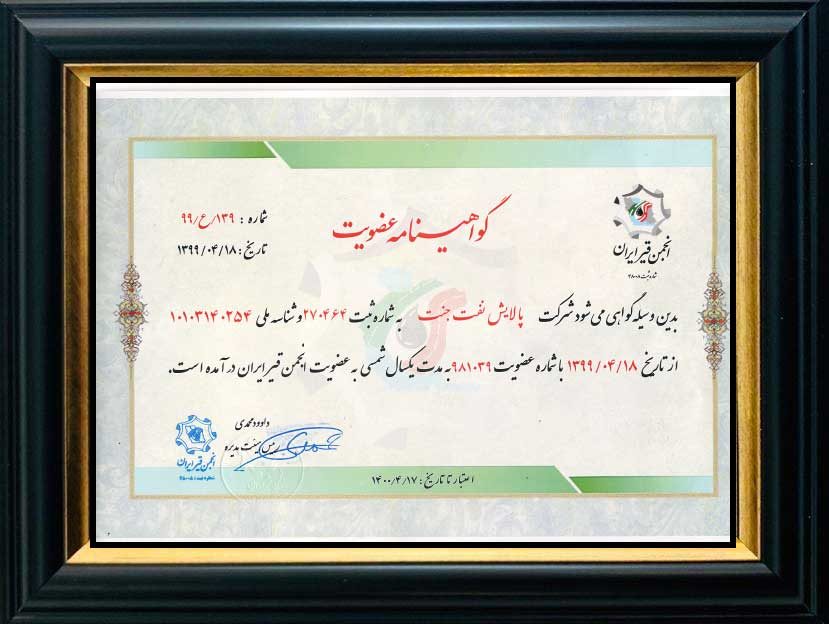 گواهینامه عضویت
شماره : ۹۹/ع/۱۳۹
تاریخ : ۱۳۹۹/۰۴/۱۸
انجمن قیر ایران
بدین وسیله گواهی می شود شرکت پالایش نفت جنت به شماره ثبت ۲۷۰۴۶۴ و شناسه ملی ۱۰۱۰۳۱۴۰۲۵۴
از تاریخ ۱۳۹۹/۰۴/۱۸ با شماره عضویت ۹۸۱۰۳۹ به مدت یکسال شمسی به عضویت انجمن قیر ایران در آمده است.
داوود محمدی
رئیس هیئت مدیره
انجمن قیر ایران
اعتبار تا تاریخ : ۱۴۰۰/۴/۱۷